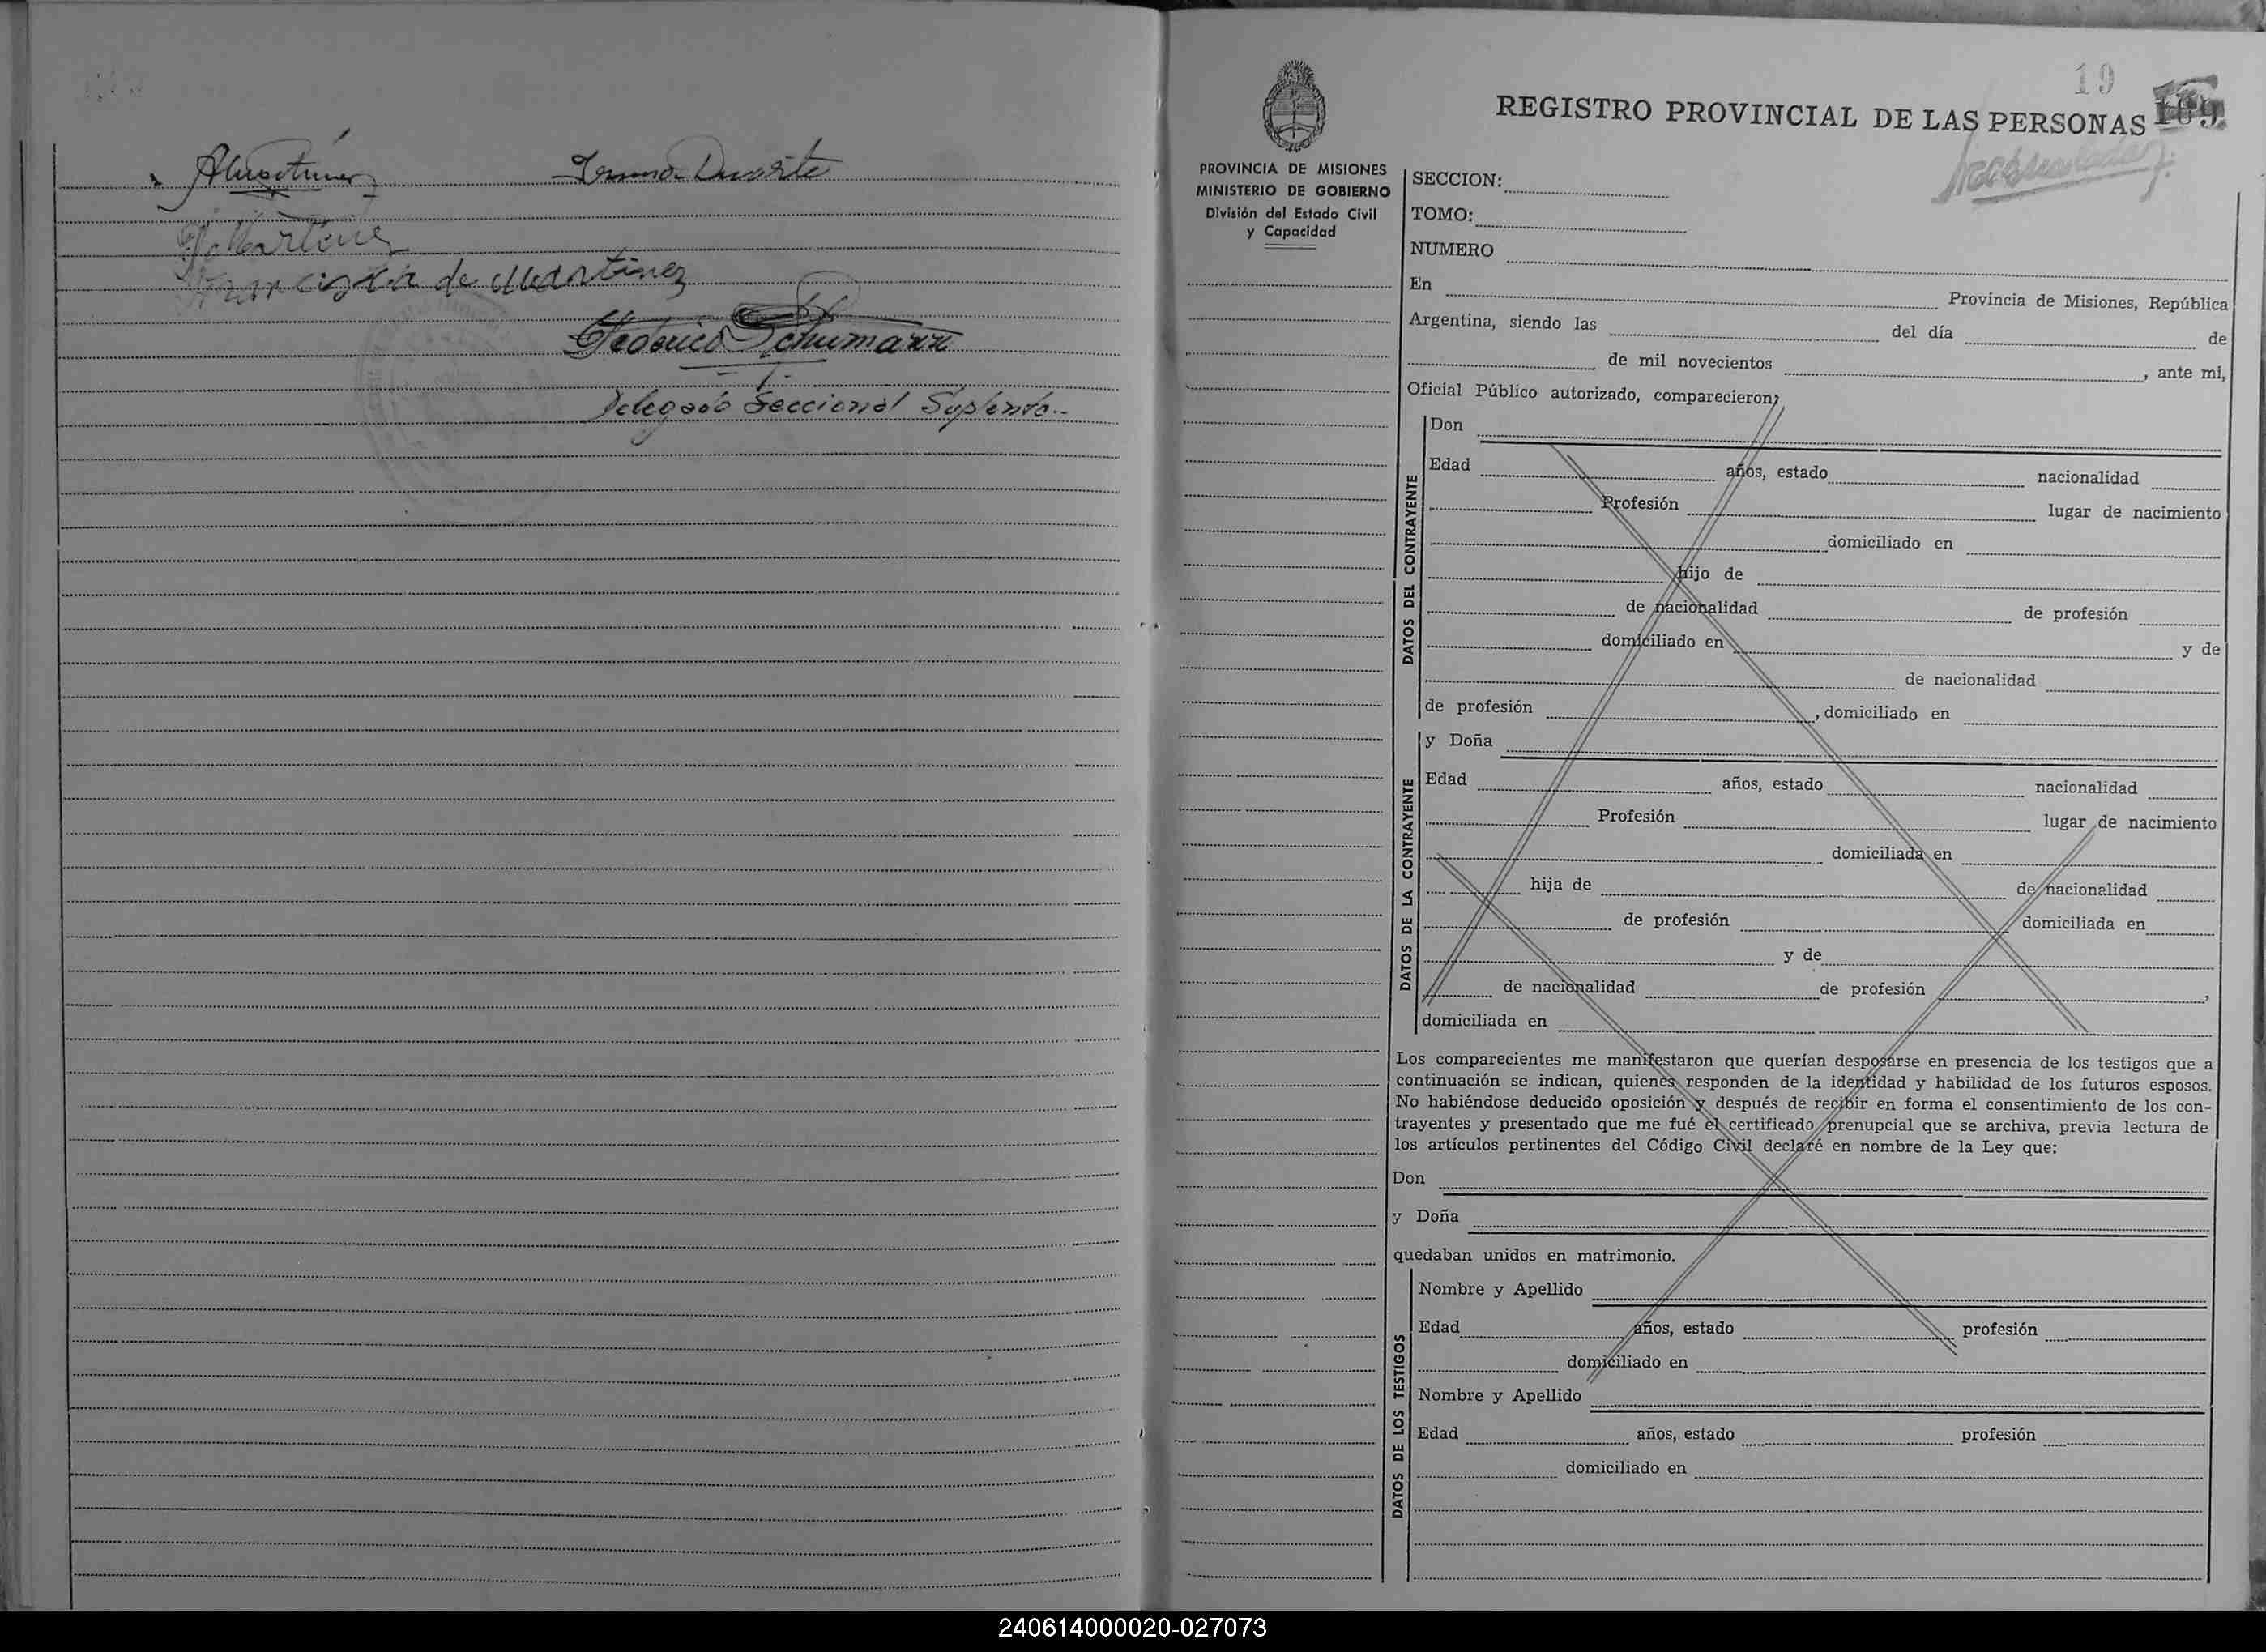 Duarte
Martinez
de Martinez
Federico Schumann
Delegado Seccional Suplente.-
19
109
REGISTRO PROVINCIAL DE LAS PERSONAS
PROVINCIA DE MISIONES
MINISTERIO DE GOBIERNO
División del Estado Civil
y Capacidad
SECCION:
TOMO:
NUMERO
En Provincia de Misiones, República
Argentina, siendo las del día de
de mil novecientos , ante mi,
Oficial Público autorizado, comparecieron;
DATOS DEL CONTRAYENTE
Don
Edad años, estado nacionalidad
Profesión lugar de nacimiento
domiciliado en
hijo de
de nacionalidad de profesión
domiciliado en y de
de nacionalidad
de profesión , domiciliado en
DATOS DE LA CONTRAYENTE
y Doña
Edad años, estado nacionalidad
Profesión lugar de nacimiento
domiciliada en
hija de de nacionalidad
de profesión domiciliada en
y de
de nacionalidad de profesión ,
domiciliada en
Los comparecientes me manifestaron que querían desposarse en presencia de los testigos que a
continuación se indican, quienes responden de la identidad y habilidad de los futuros esposos.
No habiéndose deducido oposición y después de recibir en forma el consentimiento de los con-
trayentes y presentado que me fué el certificado prenupcial que se archiva, previa lectura de
los artículos pertinentes del Código Civil declaré en nombre de la Ley que:
Don
y Doña
quedaban unidos en matrimonio.
DATOS DE LOS TESTIGOS
Nombre y Apellido
Edad años, estado profesión
domiciliado en
Nombre y Apellido
Edad años, estado profesión
domiciliado en
240614000020-027073